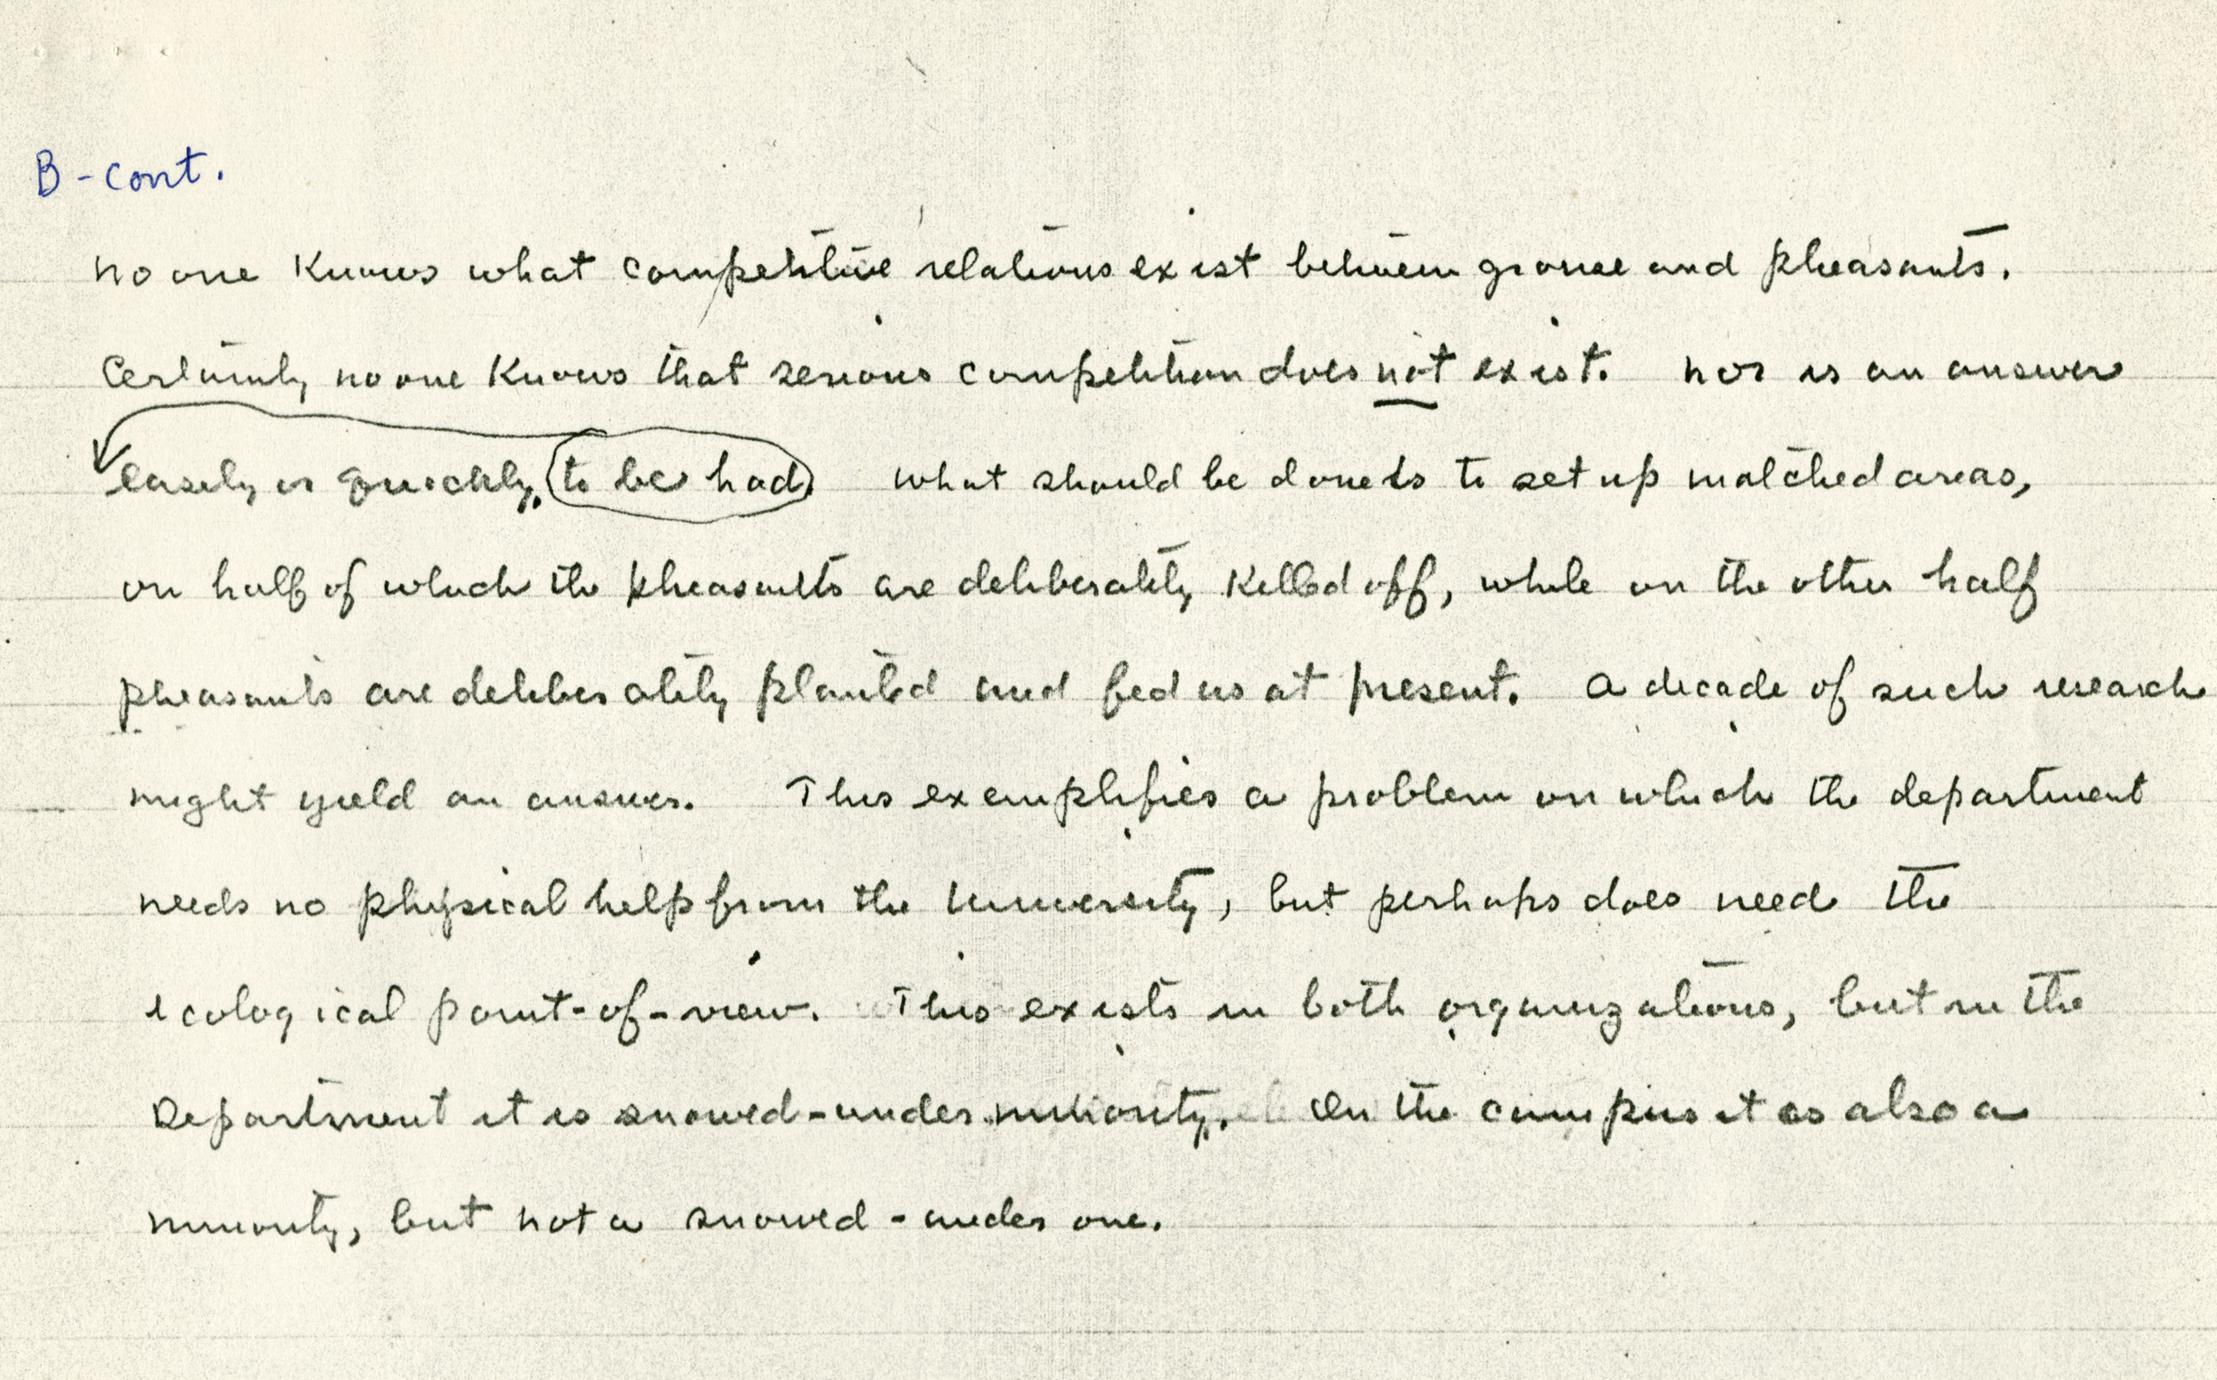 B - cont.
No one knows what competitive relations exist between grouse and pheasants.
Certainly no one knows that serious competition does not exist. Nor is an answer
easily or quickly, to be had. What should be done is to set up matched areas,
on half of which the pheasants are deliberately killed off, while on the other half
pheasants are deliberately planted and fed as at present. A decade of such research
might yield an answer. This exemplifies a problem on which the department
needs no physical help from the University, but perhaps does need the
ecological point-of-view. This exists in both organizations, but in the
Department it is snowed-under minority. On the campus it is also a
minority, but not a snowed-under one.